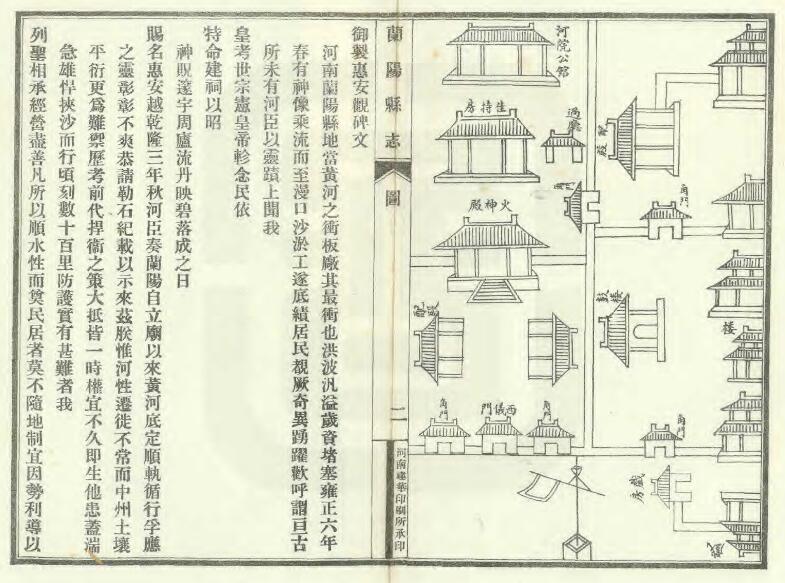 角門
角門
樓
配殿
鼓樓
戲房
河院公館
過廳
住持房
角門
火神殿
配殿
角門
西儀門
角門
蘭陽縣志
圖
二
河南建華印刷所承印
御製惠安觀碑文
河南蘭陽縣地當黃河之衝板廠其最衝也洪波汎溢歲資堵塞雍正六年
春有神像乘流而至漫口沙淤工遂底績居民覩厥奇異踴躍歡呼謂亘古
所未有河臣以靈蹟上聞我
皇考世宗憲皇帝軫念民依
特命建祠以昭
神貺邃宇周廬流丹映碧落成之日
賜名惠安越乾隆三年秋河臣奏蘭陽自立廟以來黃河底定順軌循行孚應
之靈彰彰不爽恭請勒石紀載以示來茲朕惟河性遷徙不常而中州土壤
平衍更爲難禦歷考前代捍衞之策大抵皆一時權宜不久即生他患蓋湍
急雄悍挾沙而行頃刻數十百里防護實有甚難者我
列聖相承經營盡善凡所以順水性而奠民居者莫不隨地制宜因勢利導以